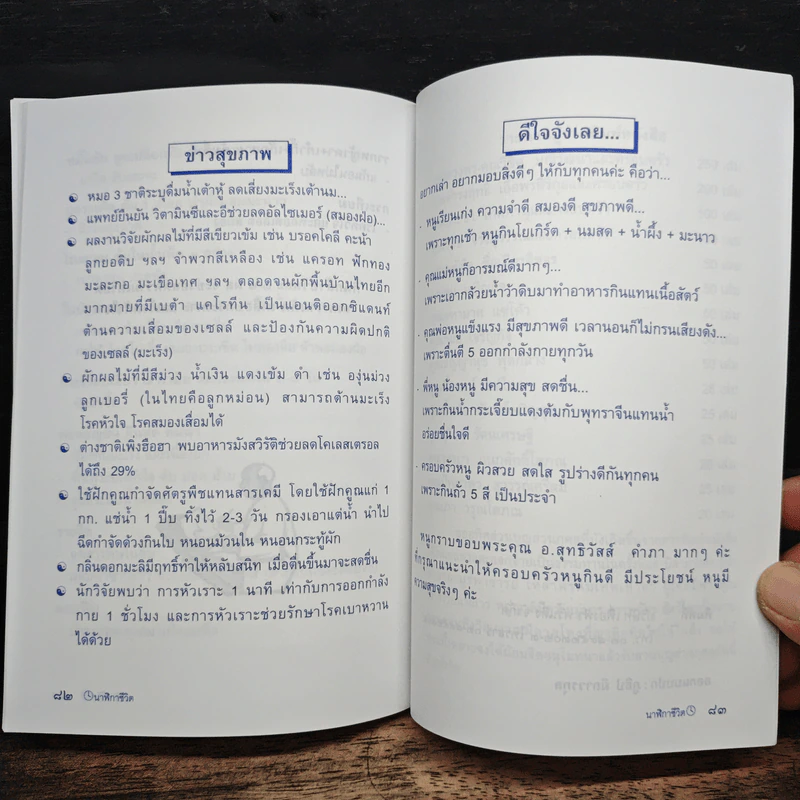 ข่าวสุขภาพ
หมอ 3 ชาติระบุดื่มน้ำเต้าหู้ ลดเสี่ยงมะเร็งเต้านม...
แพทย์ยืนยัน วิตามินซีและอีช่วยลดอัลไซเมอร์ (สมองฝ่อ)...
ผลงานวิจัยผักผลไม้ที่มีสีเขียวเข้ม เช่น บรอคโคลี คะน้า
ลูกยอดิบ ฯลฯ จำพวกสีเหลือง เช่น แครอท ฟักทอง
มะละกอ มะเขือเทศ ฯลฯ ตลอดจนผักพื้นบ้านไทยอีก
มากมายที่มีเบต้า แคโรทีน เป็นแอนติออกซิแดนท์
ต้านความเสื่อมของเซลล์ และป้องกันความผิดปกติ
ของเซลล์ (มะเร็ง)
ผักผลไม้ที่มีสีม่วง น้ำเงิน แดงเข้ม ดำ เช่น องุ่นม่วง
ลูกเบอรี่ (ในไทยคือลูกหม่อน) สามารถต้านมะเร็ง
โรคหัวใจ โรคสมองเสื่อมได้
ต่างชาติเพิ่งฮือฮา พบอาหารมังสวิรัติช่วยลดโคเลสเตรอล
ได้ถึง 29%
ใช้ฝักคูณกำจัดศัตรูพืชแทนสารเคมี โดยใช้ฝักคูณแก่ 1
กก. แช่น้ำ 1 ปี๊บ ทิ้งไว้ 2-3 วัน กรองเอาแต่น้ำ นำไป
ฉีดกำจัดด้วงกินใบ หนอนม้วนใน หนอนกระทู้ผัก
กลิ่นดอกมะลิมีฤทธิ์ทำให้หลับสนิท เมื่อตื่นขึ้นมาจะสดชื่น
นักวิจัยพบว่า การหัวเราะ 1 นาที เท่ากับการออกกำลัง
กาย 1 ชั่วโมง และการหัวเราะช่วยรักษาโรคเบาหวาน
ได้ด้วย
๘๒ นาฬิกาชีวิต
ดีใจจังเลย...
อยากเล่า อยากมอบสิ่งดีๆ ให้กับทุกคนค่ะ คือว่า...
. หนูเรียนเก่ง ความจำดี สมองดี สุขภาพดี...
เพราะทุกเช้า หนูกินโยเกิร์ต + นมสด + น้ำผึ้ง + มะนาว
. คุณแม่หนูก็อารมณ์ดีมากๆ...
เพราะเอากล้วยน้ำว้าดิบมาทำอาหารกินแทนเนื้อสัตว์
. คุณพ่อหนูแข็งแรง มีสุขภาพดี เวลานอนก็ไม่กรนเสียงดัง...
เพราะตื่นตี 5 ออกกำลังกายทุกวัน
. พี่หนู น้องหนู มีความสุข สดชื่น...
เพราะกินน้ำกระเจี๊ยบแดงต้มกับพุทราจีนแทนน้ำ
อร่อยชื่นใจดี
. ครอบครัวหนู ผิวสวย สดใส รูปร่างดีกันทุกคน
เพราะกินถั่ว 5 สี เป็นประจำ
หนูกราบขอบพระคุณ อ.สุทธิวัสส์ คำภา มากๆ ค่ะ
ที่กรุณาแนะนำให้ครอบครัวหนูกินดี มีประโยชน์ หนูมี
ความสุขจริงๆ ค่ะ
นาฬิกาชีวิต ๘๓